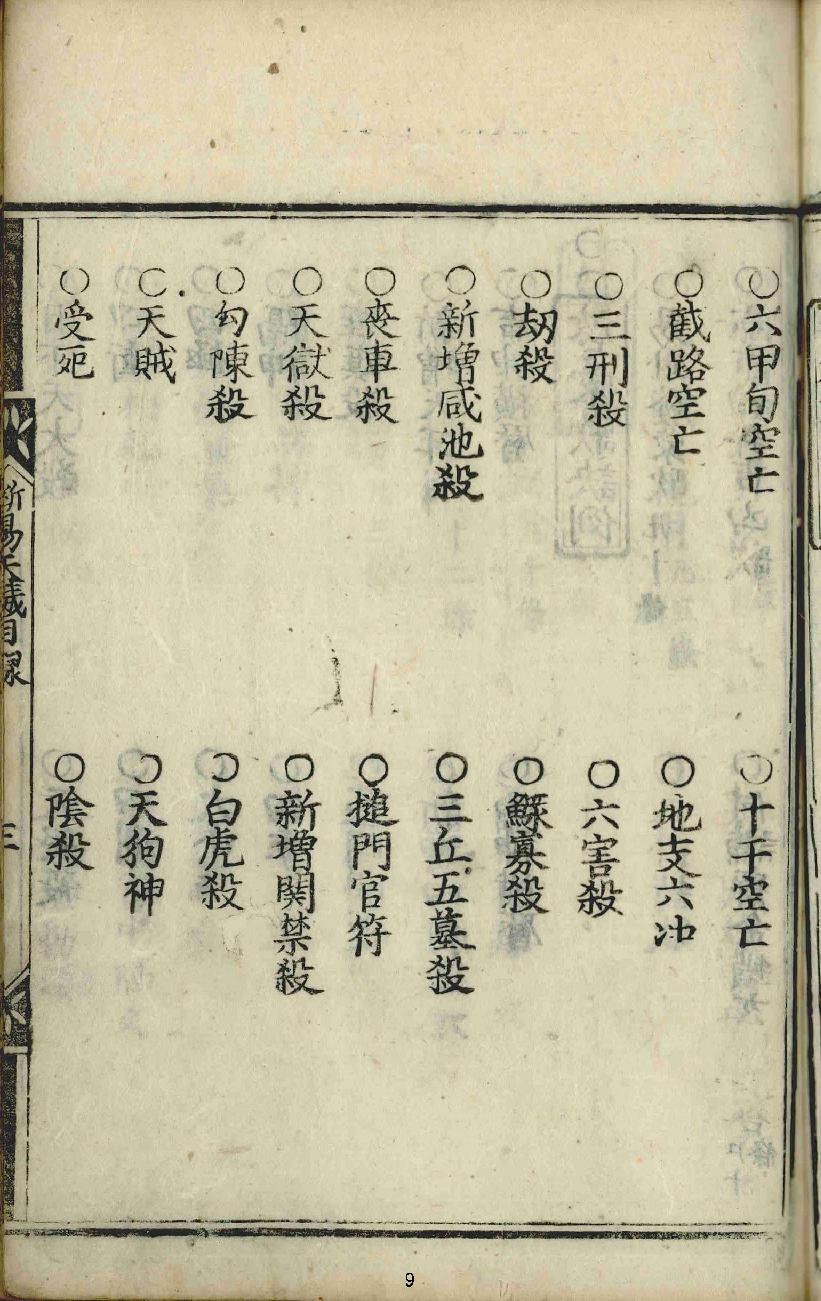 ○六甲旬空亡 ○十干空亡
○截路空亡 ○地支六冲
○三刑殺 ○六害殺
○劫殺 ○鰥寡殺
○新増咸池殺 ○三丘五墓殺
○喪車殺 ○搥門官符
○天獄殺 ○新増関禁殺
○勾陳殺 ○白虎殺
○天賊 ○天狗神
○受死 ○陰殺
三
9